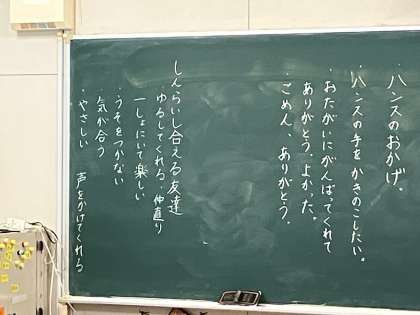 ハンスのおかげ。
ハンスの手をかきのこしたい。
・おたがいにがんばってくれて
ありがとう、よかった。
・ごめん、ありがとう。
しんらいし合える友達
ゆるしてくれる、仲直り
一しょにいて楽しい
・うそをつかない
・気が合う
・やさしい 声をかけてくれる